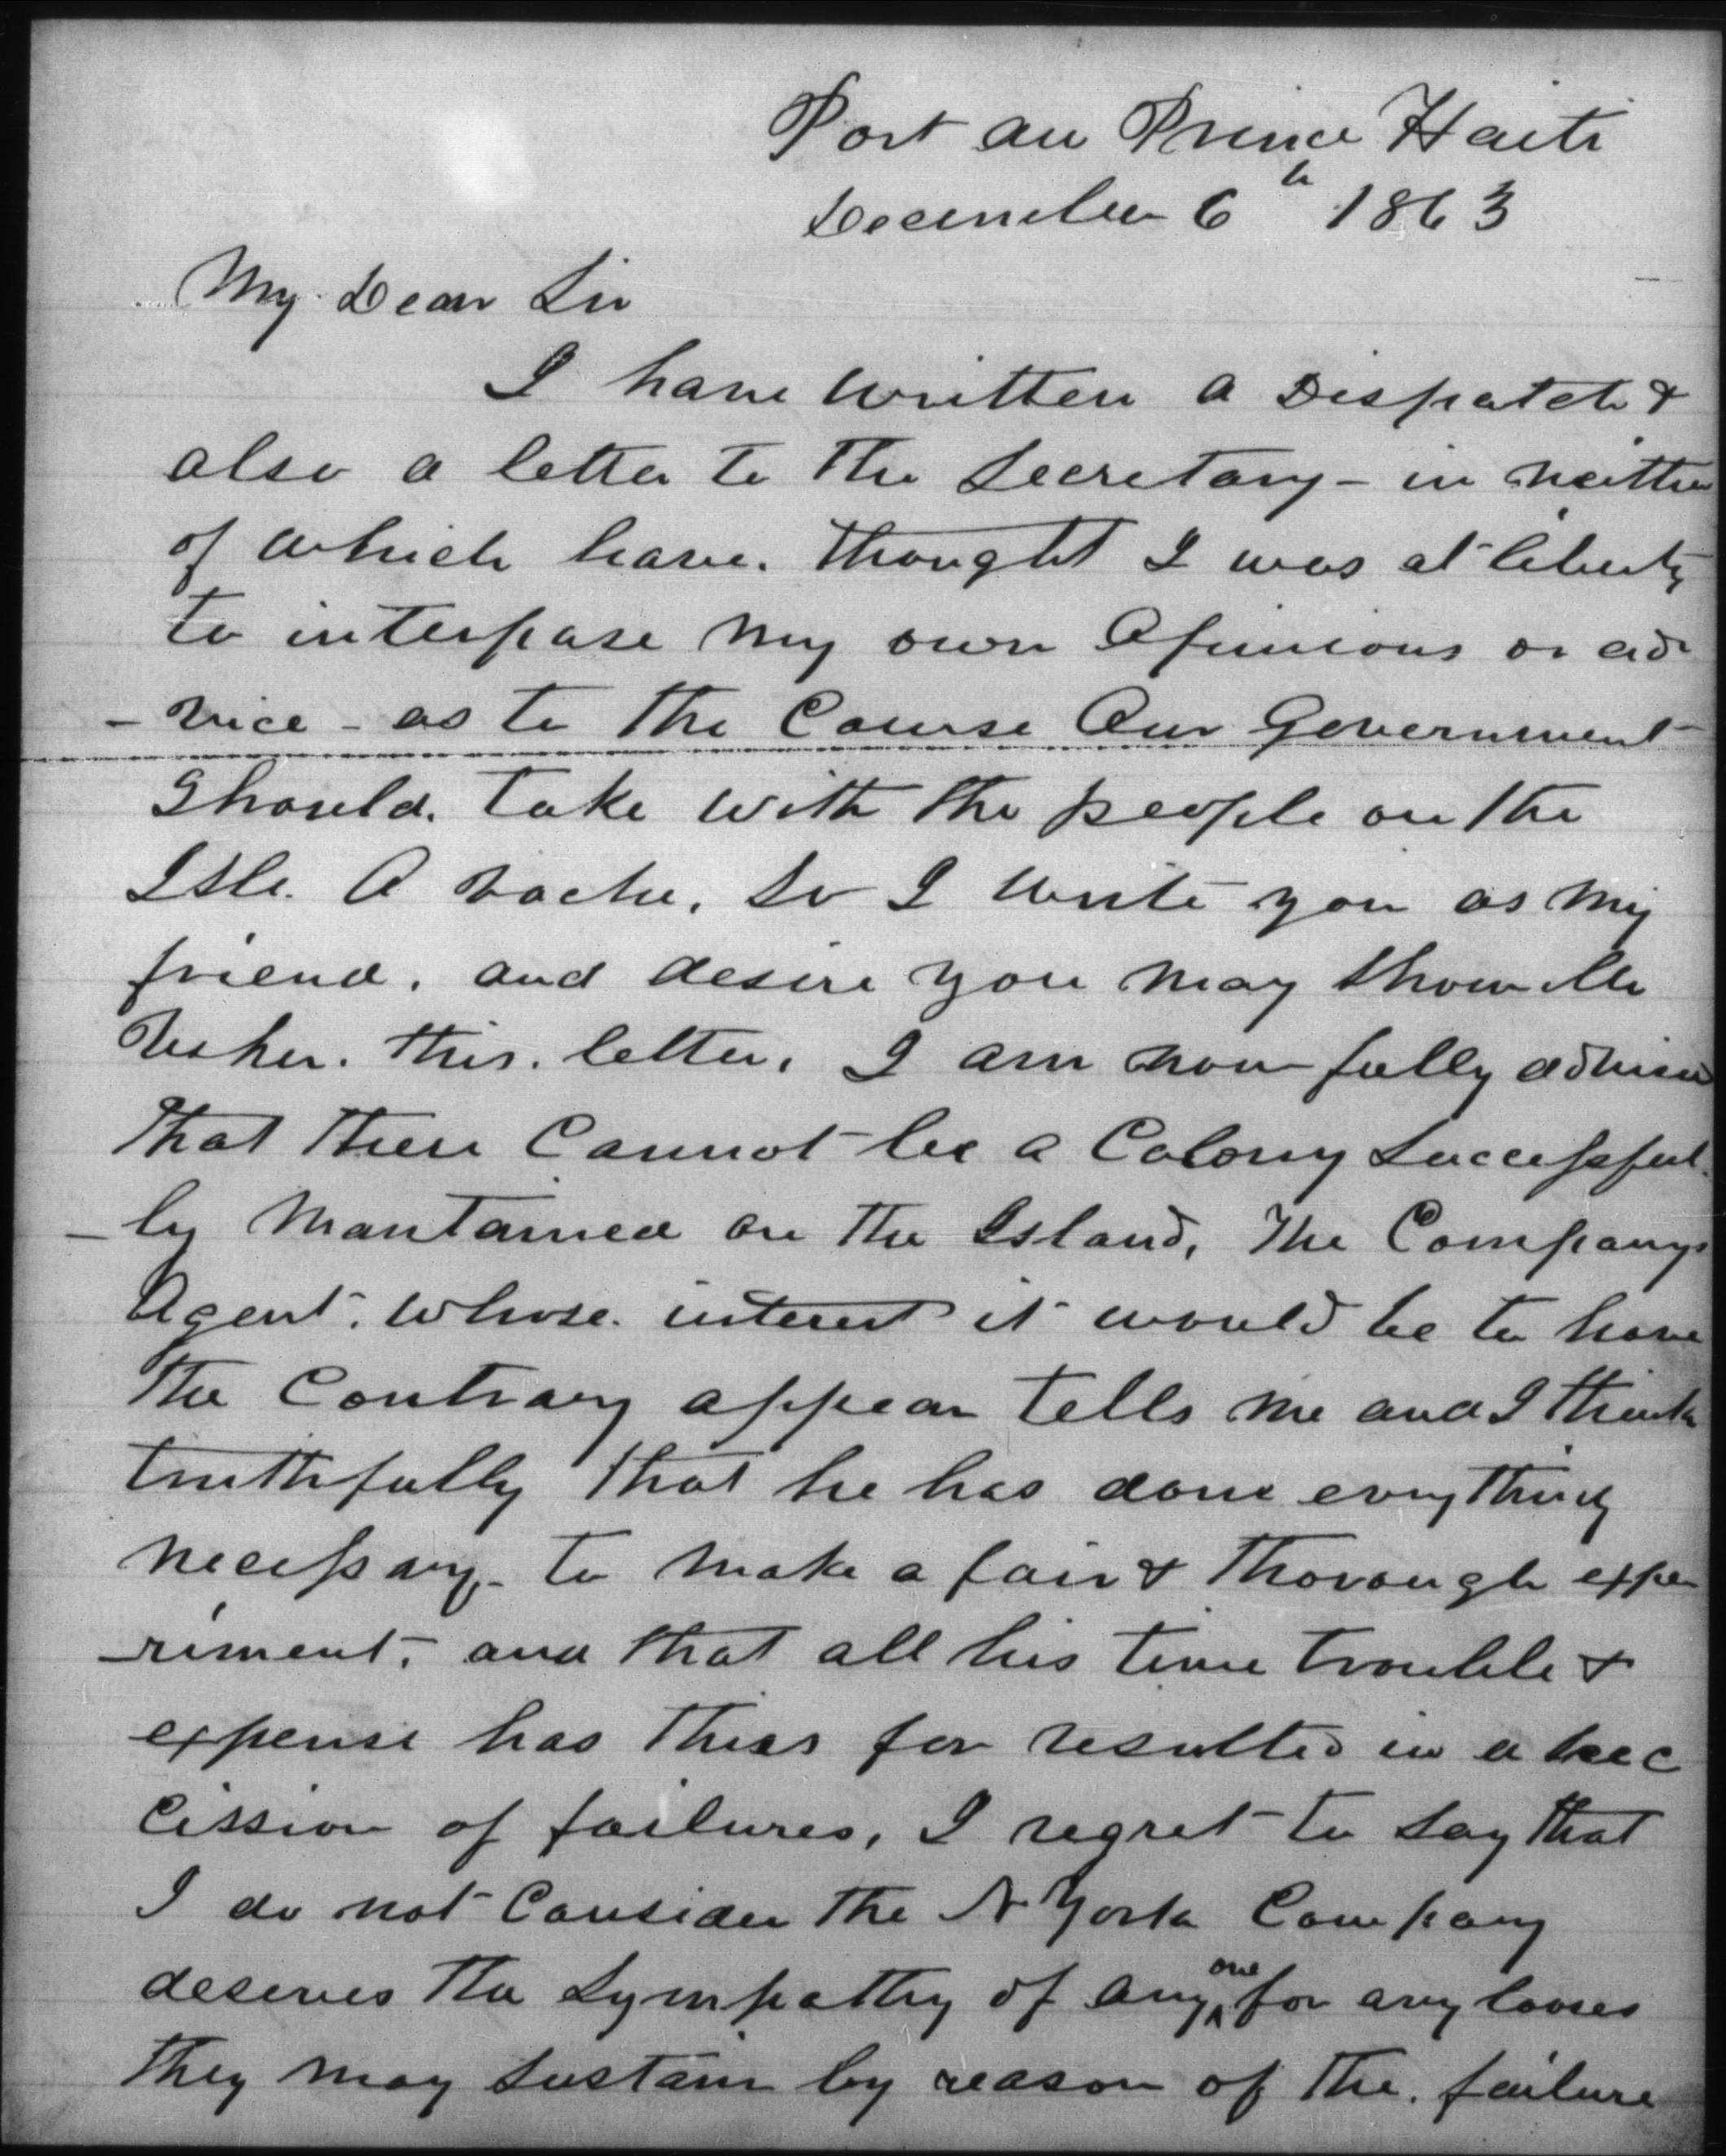 Port au Prince Haiti
December 6th 1863
My Dear Sir
I have written a Dispatch &
also a letter to the Secretary - in neither
of which have. thought I was at liberty
to interpose my own Opinions or ad-
- vice - as to the Course Our Government
Should. take with the people on the
Isle. A vache. So I write you as my
friend. and desire you may show Mr
Usher. this. letter. I am now fully advised
That There Cannot be a Colony Successful-
- ly Mantained on The Island, The Companys
Agent. whose. interest it would be to have
The Contrary appear tells me and I think
truthfully That he has done everything
necessary - to make a fair & Thorough expe
-riment. and that all his time trouble &
expense has thus far resulted in a suc
cission of failures, I regret to say That
I do not Consider The N York Company
deserves The Sympathy of any one for any looses
They may sustain by reason of The. failure